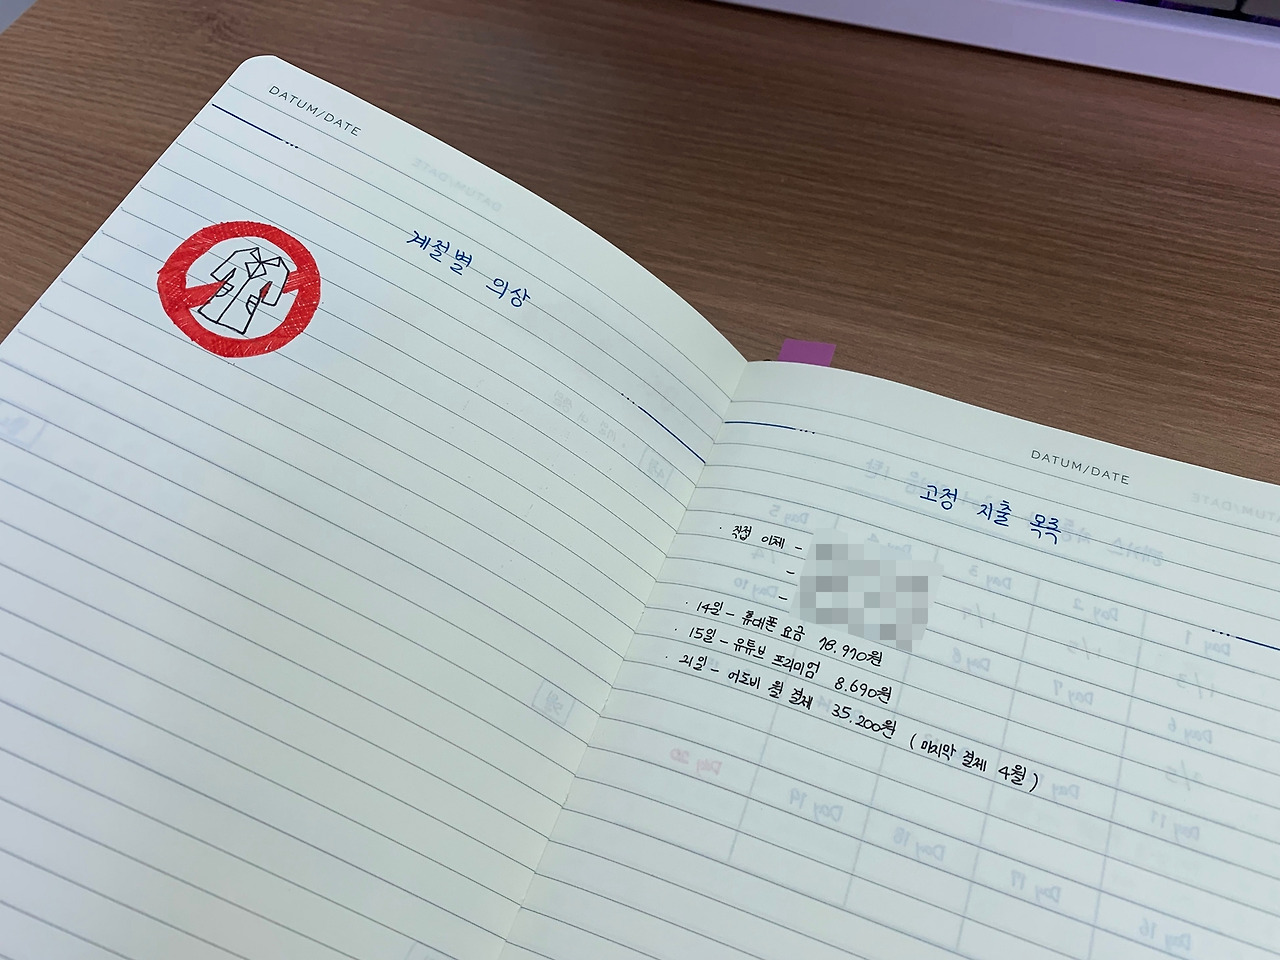 DATUM/DATE
계절별 의상
DATUM/DATE
고정 지출 목록
· 직접 이체 -
-
-
· 14일 - 휴대폰 요금 78.970원
· 15일 - 유튜브 프리미엄 8.690원
· 21일 - 어도비 월 결제 35.200원 (마지막 결제 4월)